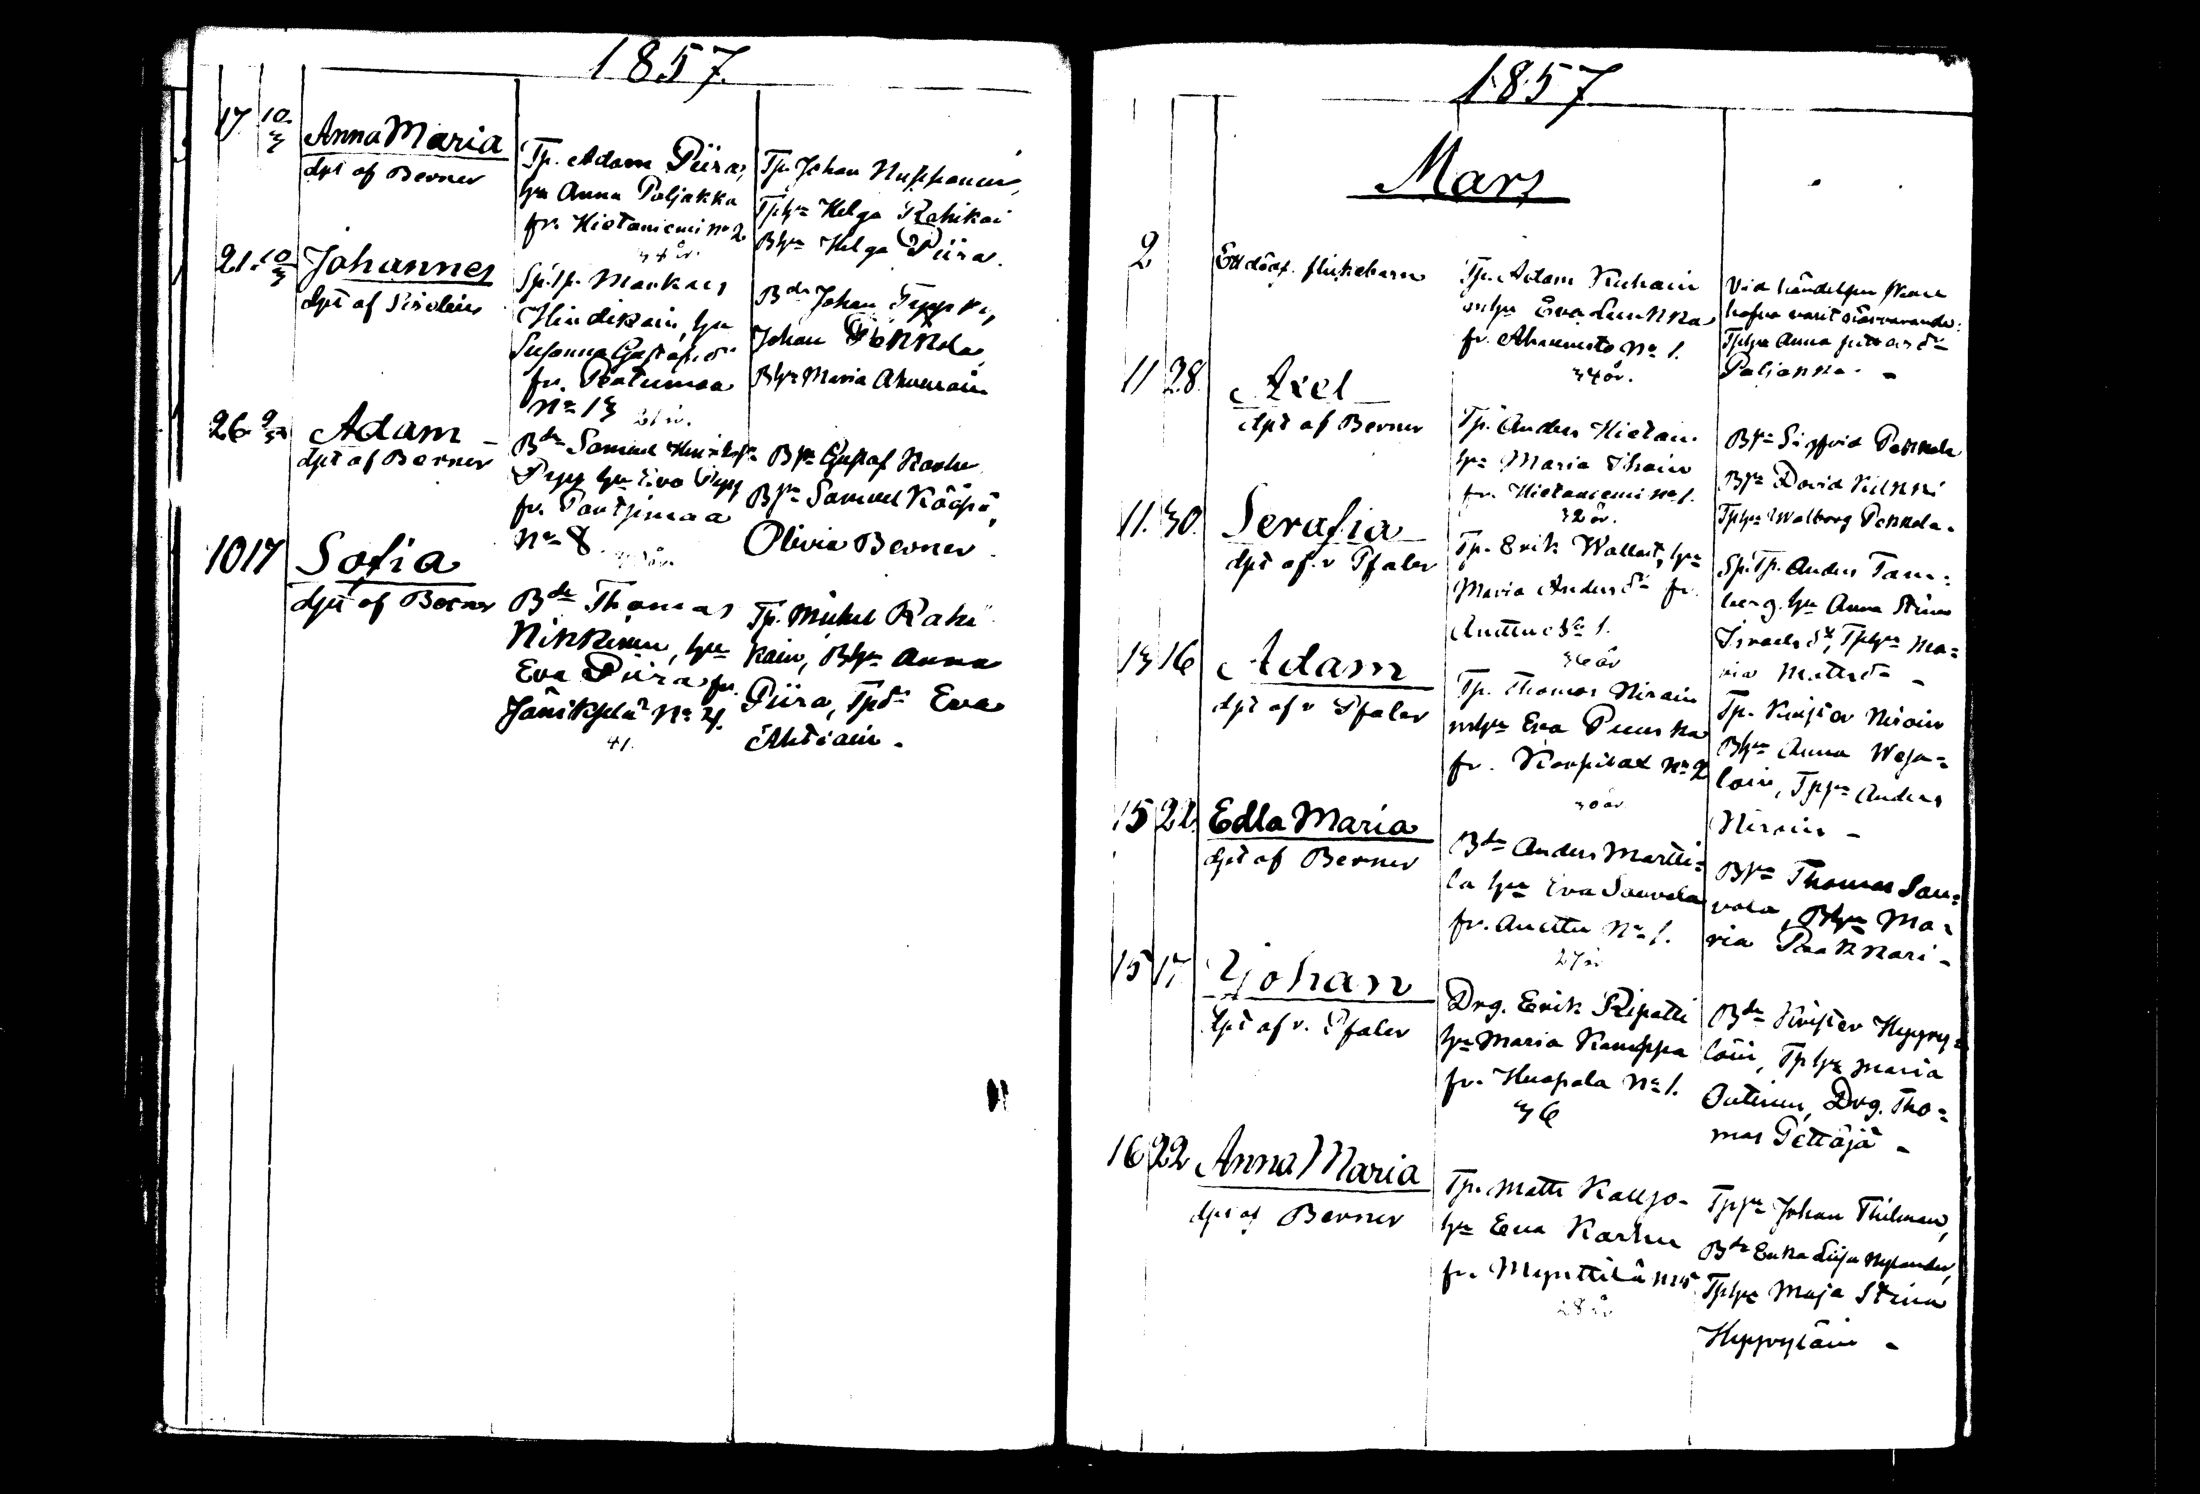 1857
17 10/3 Anna Maria
dpt af Berner
Tp. Adam Piira,
hu Anna Poljakka
fr. Hietaniemi No 2
34 år.
Tp. Johan Nupponen,
Tphu Helga Rahikai
Bhu Helga Piira.
21. 10/3 Johannes
dpt af
Sp.Tp. Markus
Hindikain, hu
Susanna Gustafsdr
fr. Ratumaa
No 13 21 år.
Bdn Johan Pyppy,
Johan Pekkola,
Bhu Maria Ahvenain
26 Adam
dpt af Berner
Bdn Samuel
Pypp hu Eva Pypp
fr. Pontjimaa
No 8
Bsn Gustaf
Bsn Samuel Kääpä,
Olivia Berner
10 17 Sofia
dpt af Berner
Bdn Thomas
Nikkinen, hu
Eva Piira fr.
No 4.
41.
Tp. Mickel Rahi
kain, Bhu Anna
Piira, Tpdr Eva
Ahtiain.
1857
Mars
2 Ett dödf. flickebarn
Tp. Adam
mhu Eva
fr. No 1.
34 år.
Vid händelsen skall
hafva varit närvarande:
Tphu Anna
Poljakka. -
11 28. Axel
dpt af Berner
Tp. Anders Hietan.
hu Maria Ihain
fr. Hietaniemi No 1.
32 år.
Bsn Sigfrid Pekkola
Bsn David Kukki
Tphu Walborg Pekkola.
11. 30. Serafia
dpt af v Pfaler
Tp. Erik Wallast, hu
Maria Andersdr fr.
Anttu No 1.
36 år
Sp.Tp. Anders Tam=
berg. hu Anna Stina
Israelsdr, Tphu Ma=
ria Mattsdr -
13 16 Adam
dpt af v Pfaler
Tp. Thomas Nirain
mhu Eva Puuska
fr. No 2
30 år
Tp. Krister Nirain
Bhu Anna Weja=
lain, Tpsn Anders
Nirain -
15 22. Edla Maria
dpt af Berner
Bdn Anders Martti=
la hu Eva Sauvola
fr. Anttu No 1.
27 år
Bsn Thomas Sau=
vola, Bhu Ma=
ria Paakkari -
15 17 Johan
dpt af v. Pfaler
Drg. Erik Ripatti
hu Maria Kamppa
fr. Huopala No 1.
36
Bdn Krister Hyyry=
läin, Tphu Maria
Outinen, Drg. Tho=
mas Pettäjä -
16 22 Anna Maria
dpt af Berner
Tp. Matts Kaljo-
hu Eva Karhu
fr. Myttilä No 5
28 år
Tpsn Johan Thilman,
Bdr Erika Lisa Nylander,
Tphu Maja Stina
Hyyryläin -